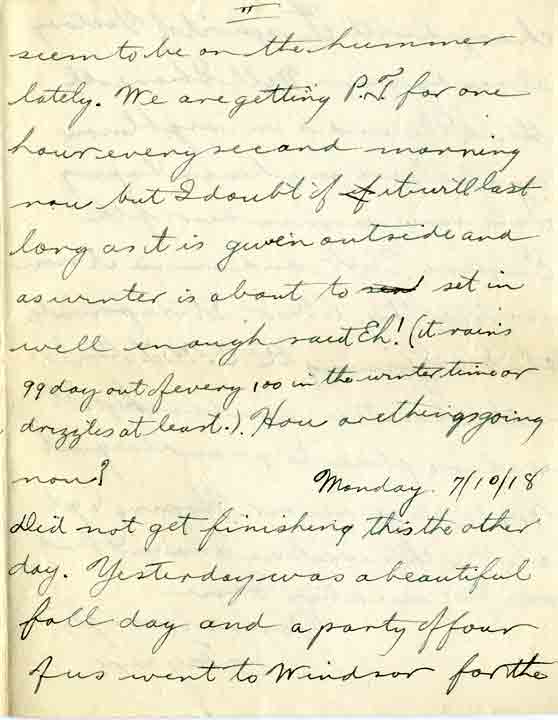 II
seem to be on the hummer
lately. We are getting P.T. for one
hour every second morning
now but I doubt if it will last
long as it is given outside and
as winter is about to set in
well enough said Eh! (it rains
99 day out of every 100 in the winter time or
drizzles at least.). How are things going
now?
Monday. 7/10/18
Did not get finishing this the other
day. Yesterday was a beautiful
fall day and a party of four
of us went to Windsor for the